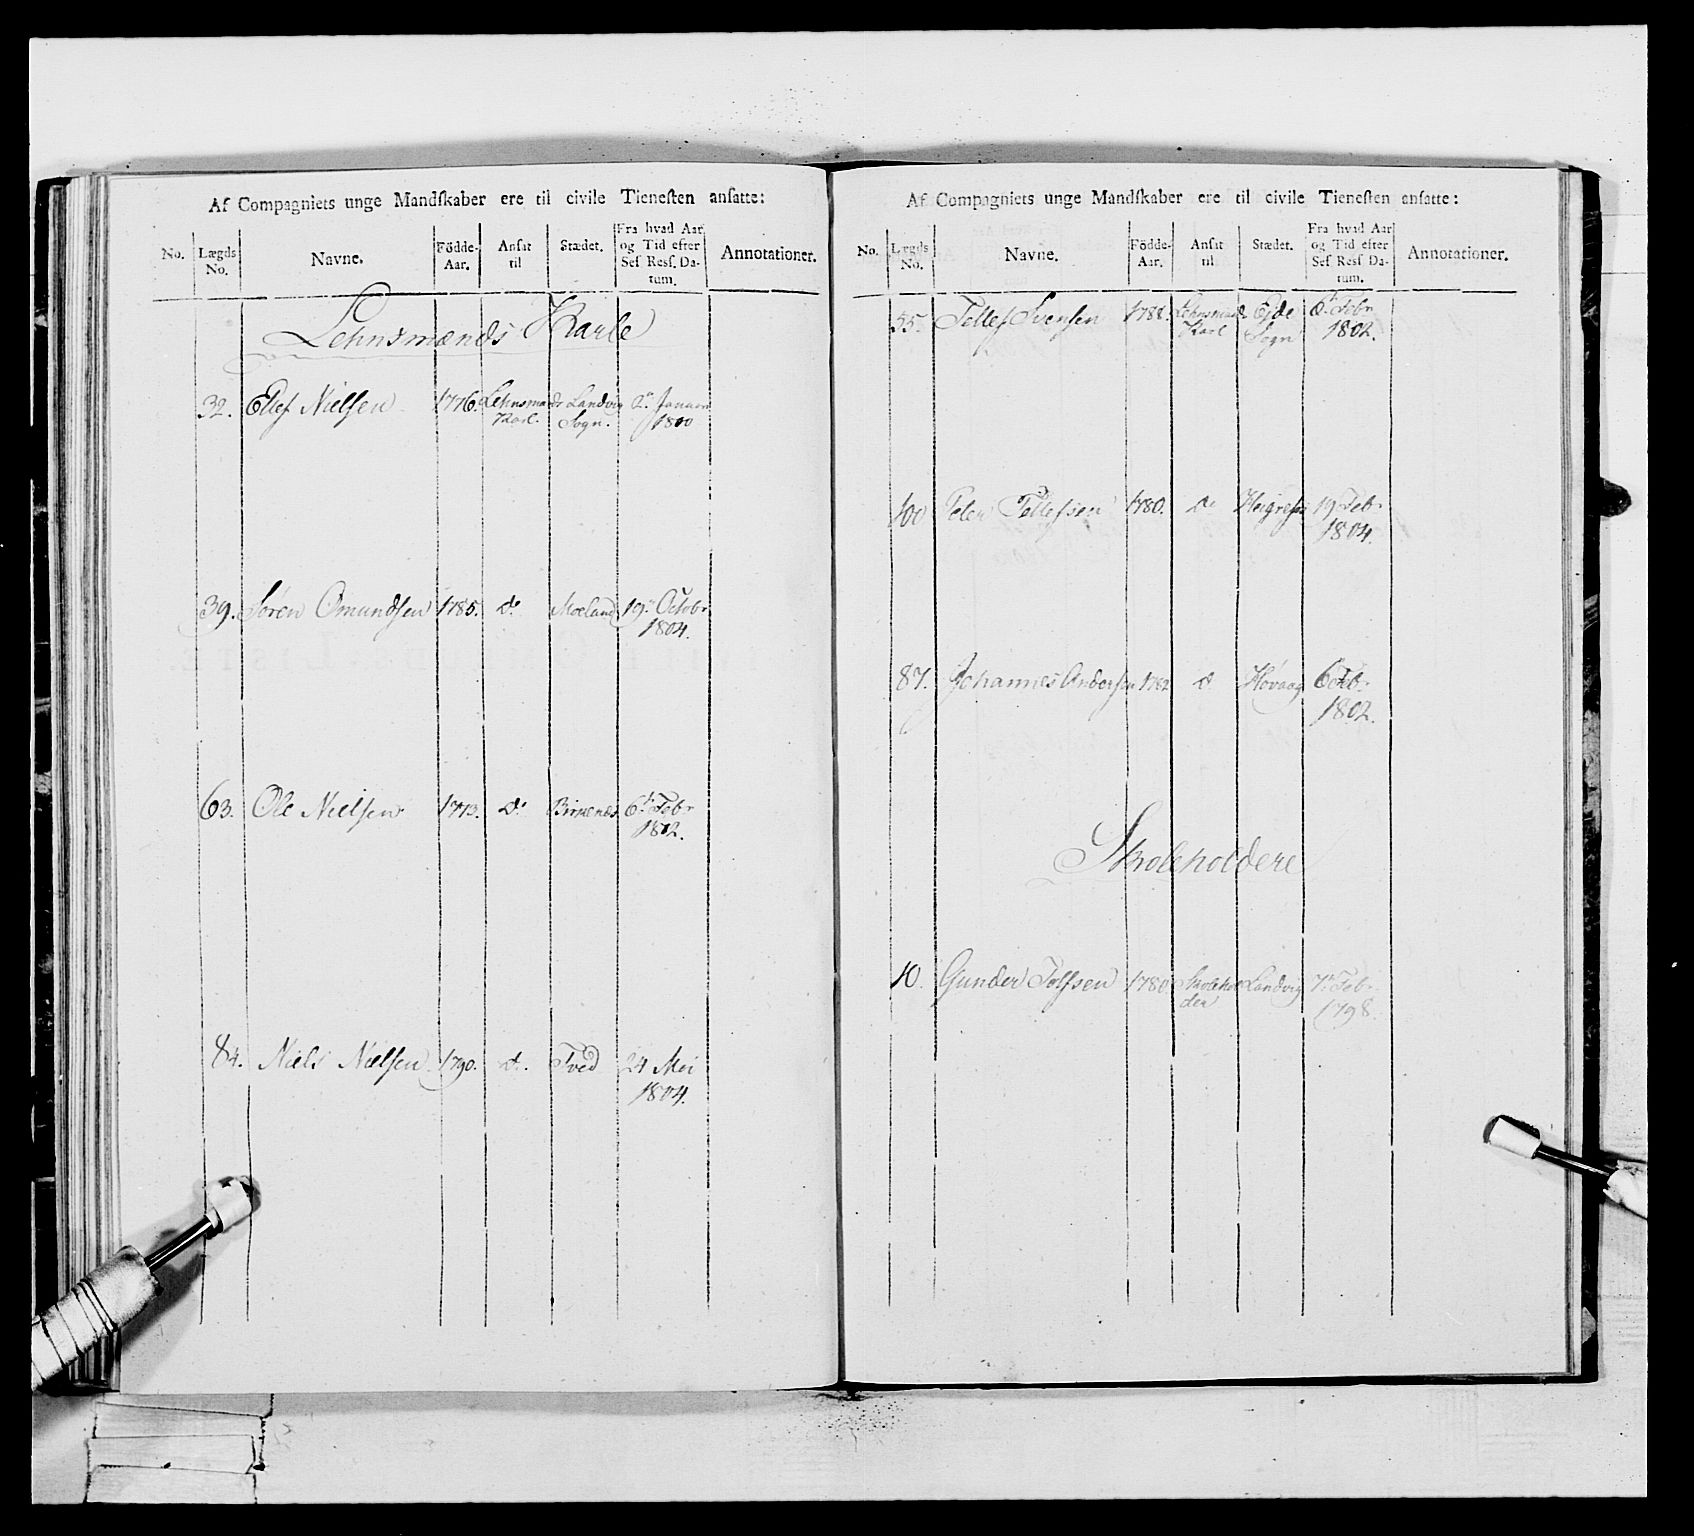 Af Compagniets unge Mandſkaber ere til civile Tieneſten anſatte:
No. Lægds No. Navne. Födde-Aar. Anſat til Stædet. Fra hvad Aar og Tid efter Seſ Resſ. Datum. Annotationer.
Lehnsmænds Karle
32. Ellef Nielsen 1776. Lehnsmands Landvig 2n Januari
Karl. Sogn. 1800
39. Sören Omundsen 1785. do Moeland 19n Octobr
1804.
63. Ole Nielsen 1773. do Birkenes 6n Febr
1802.
84. Niels Nielsen 1790. do. Tved 24 Mei
1804.
Af Compagniets unge Mandſkaber ere til civile Tieneſten anſatte:
No. Lægds No. Navne. Födde-Aar. Anſat til Stædet. Fra hvad Aar og Tid efter Seſ Resſ Datum. Annotationer.
55. Tellef Svensen 1788. Lehnsmands Eyde 6n Febr
Karl Sogn 1802.
100 Peder Tellefsen 1780. do 19 Febr
1804.
87. Johannes Andersen 1782 do Høvaag 6 Febr
1802.
Skoleholdere
10. Gunder Tolfsen 1780 Skolehol Landvig 7n Febr
der 1798.